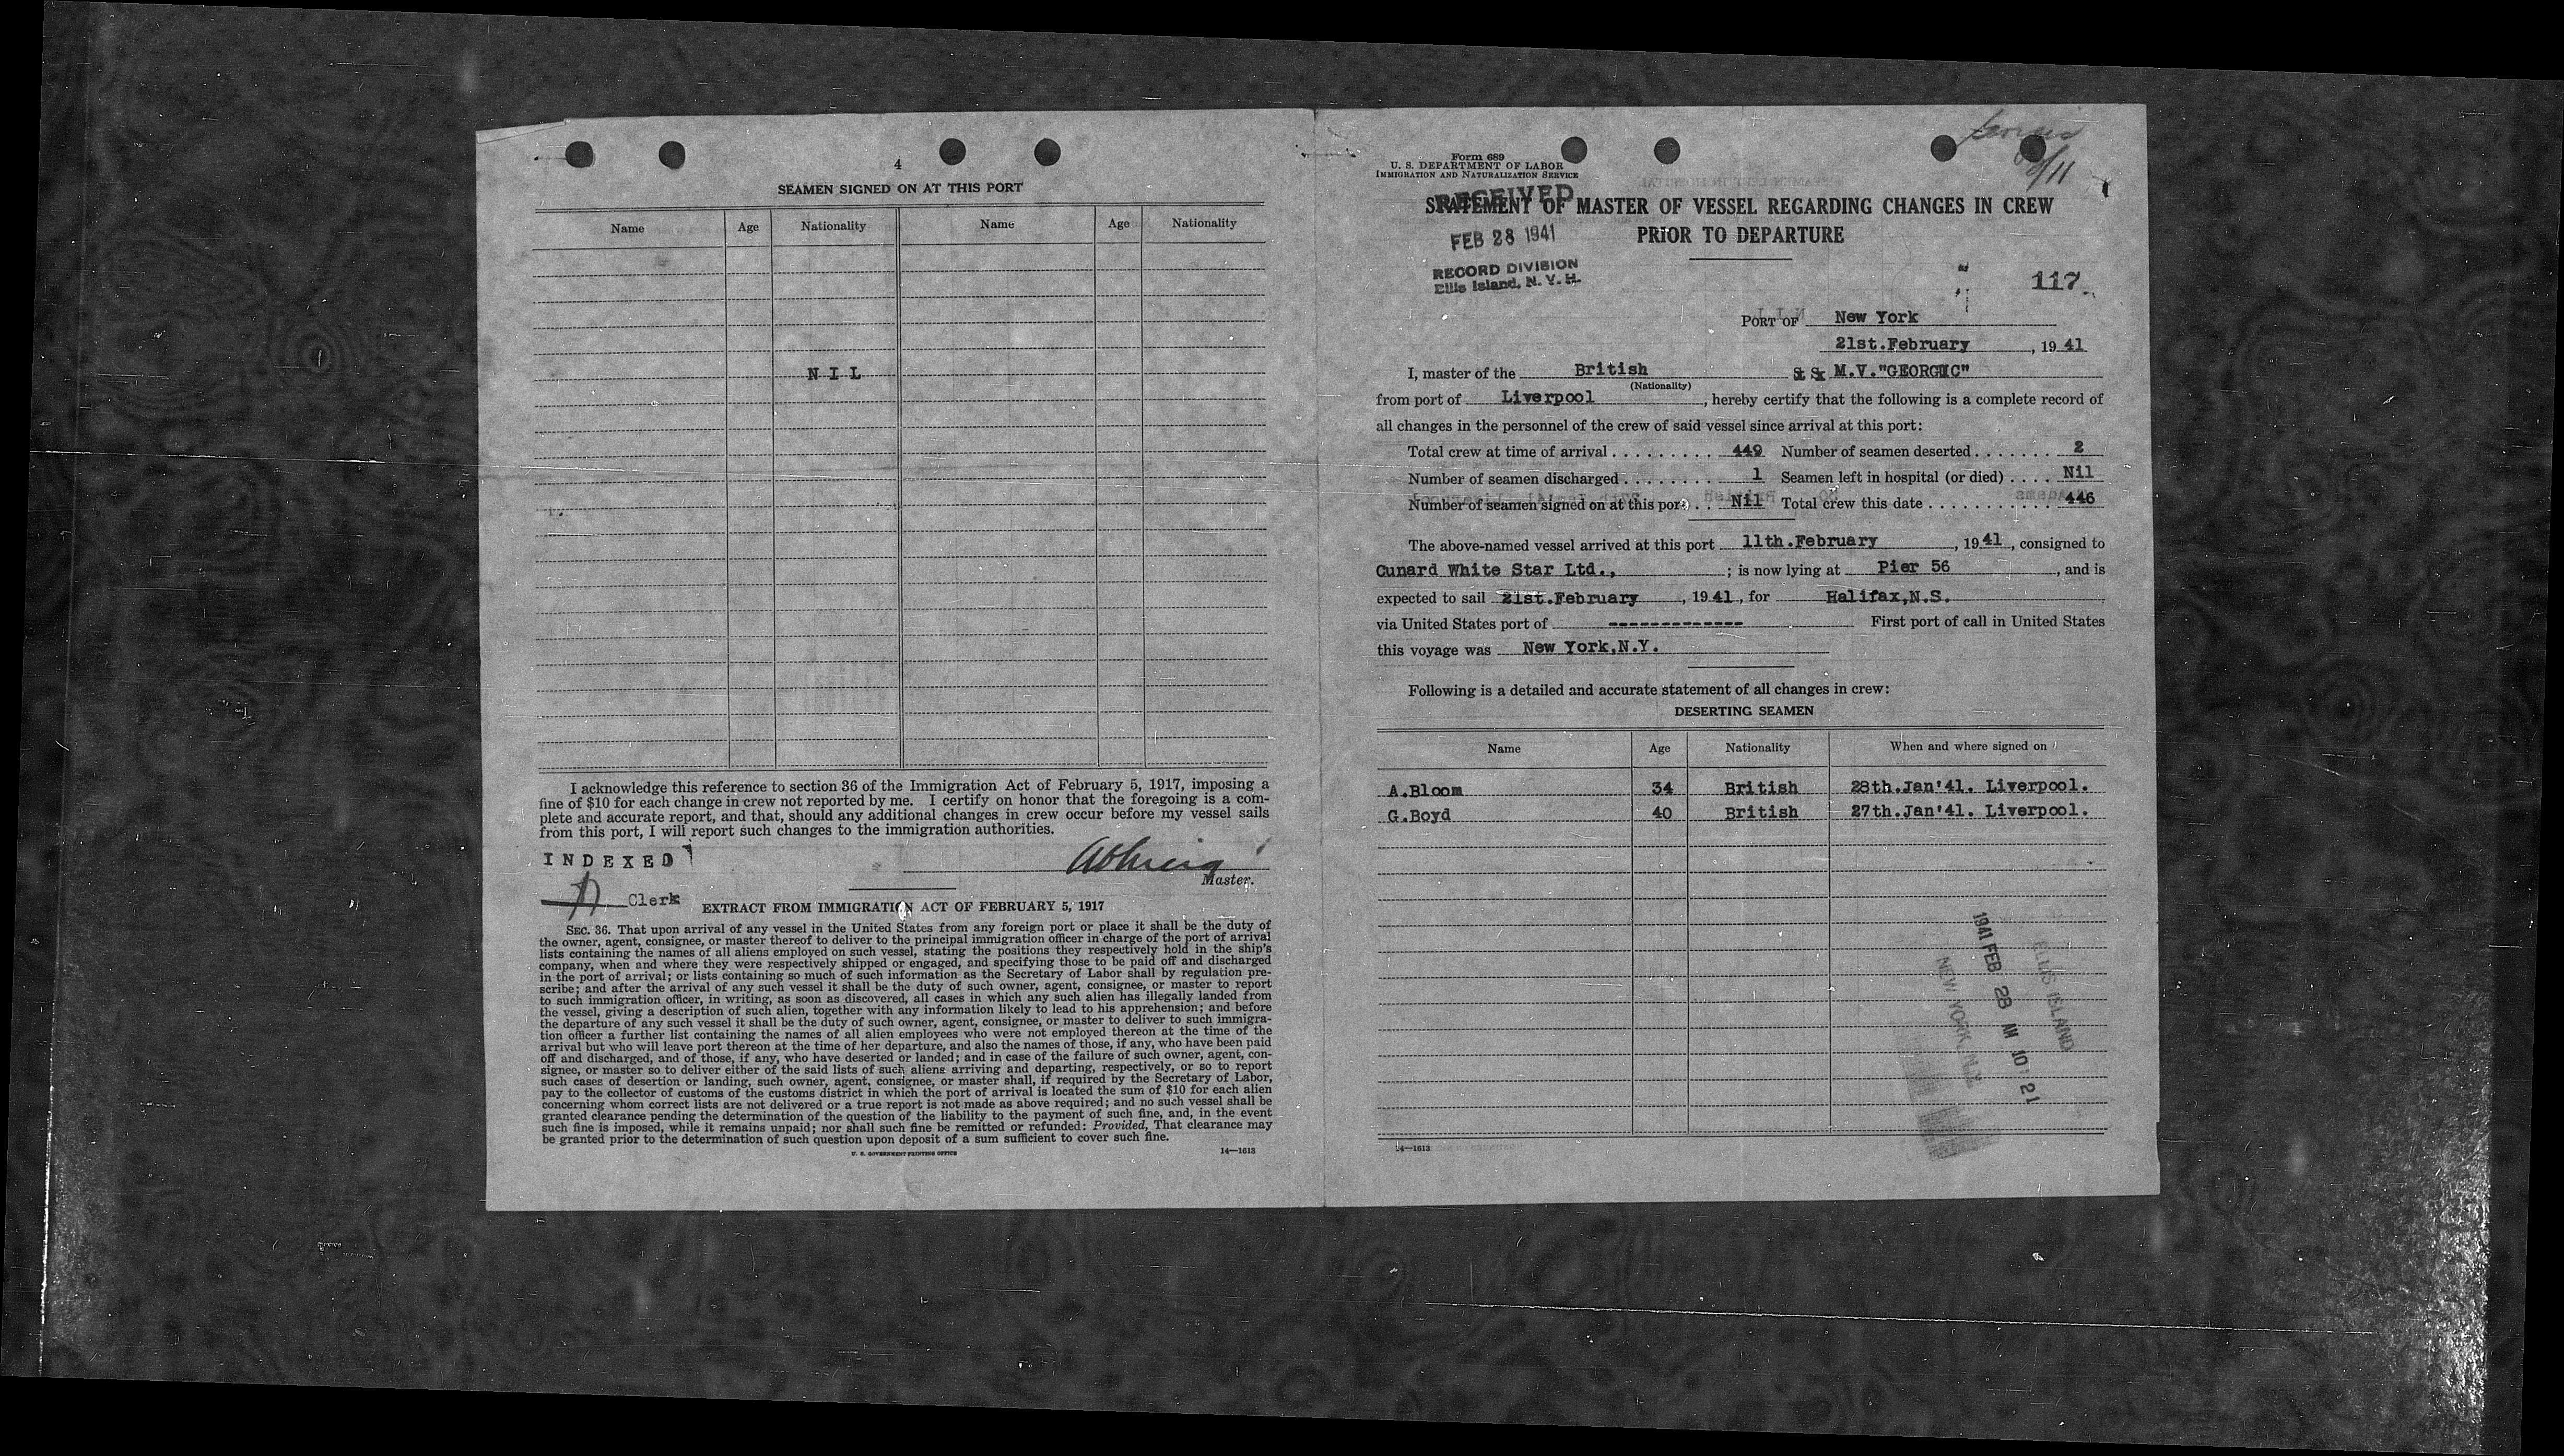 4
SEAMEN SIGNED ON AT THIS PORT
Name Age Nationality Name Age Nationality
N I L
I acknowledge this reference to section 36 of the Immigration Act of February 5, 1917, imposing a
fine of $10 for each change in crew not reported by me. I certify on honor that the foregoing is a com-
plete and accurate report, and that, should any additional changes in crew occur before my vessel sails
from this port, I will report such changes to the immigration authorities.
INDEXED
Master.
Clerk
EXTRACT FROM IMMIGRATION ACT OF FEBRUARY 5, 1917
SEC. 36. That upon arrival of any vessel in the United States from any foreign port or place it shall be the duty of
the owner, agent, consignee, or master thereof to deliver to the principal immigration officer in charge of the port of arrival
lists containing the names of all aliens employed on such vessel, stating the positions they respectively hold in the ship's
company, when and where they were respectively shipped or engaged, and specifying those to be paid off and discharged
in the port of arrival; or lists containing so much of such information as the Secretary of Labor shall by regulation pre-
scribe; and after the arrival of any such vessel it shall be the duty of such owner, agent, consignee, or master to report
to such immigration officer, in writing, as soon as discovered, all cases in which any such alien has illegally landed from
the vessel, giving a description of such alien, together with any information likely to lead to his apprehension; and before
the departure of any such vessel it shall be the duty of such owner, agent, consignee, or master to deliver to such immigra-
tion officer a further list containing the names of all alien employees who were not employed thereon at the time of the
arrival but who will leave port thereon at the time of her departure, and also the names of those, if any, who have been paid
off and discharged, and of those, if any, who have deserted or landed; and in case of the failure of such owner, agent, con-
signee, or master so to deliver either of the said lists of such aliens arriving and departing, respectively, or so to report
such cases of desertion or landing, such owner, agent, consignee, or master shall, if required by the Secretary of Labor,
pay to the collector of customs of the customs district in which the port of arrival is located the sum of $10 for each alien
concerning whom correct lists are not delivered or a true report is not made as above required; and no such vessel shall be
granted clearance pending the determination of the question of the liability to the payment of such fine, and, in the event
such fine is imposed, while it remains unpaid; nor shall such fine be remitted or refunded: Provided, That clearance may
be granted prior to the determination of such question upon deposit of a sum sufficient to cover such fine.
U. S. GOVERNMENT PRINTING OFFICE 14—1613
Form 689
U. S. DEPARTMENT OF LABOR
IMMIGRATION AND NATURALIZATION SERVICE
RECEIVED
STATEMENT OF MASTER OF VESSEL REGARDING CHANGES IN CREW
PRIOR TO DEPARTURE
FEB 28 1941
RECORD DIVISION
Ellis Island, N. Y. H.
117
PORT OF New York
21st.February, 1941
I, master of the British M.V."GEORGIC"
(Nationality)
from port of Liverpool, hereby certify that the following is a complete record of
all changes in the personnel of the crew of said vessel since arrival at this port:
Total crew at time of arrival . . . . . . . . . 449 Number of seamen deserted . . . . . . . 2
Number of seamen discharged . . . . . . . . 1 Seamen left in hospital (or died) . . . . Nil
Number of seamen signed on at this port . . Nil Total crew this date . . . . . . . . . . . 446
The above-named vessel arrived at this port 11th.February, 1941, consigned to
Cunard White Star Ltd., ; is now lying at Pier 56, and is
expected to sail 21st.February, 1941, for Halifax,N.S.
via United States port of ------------- First port of call in United States
this voyage was New York,N.Y.
Following is a detailed and accurate statement of all changes in crew:
DESERTING SEAMEN
Name Age Nationality When and where signed on
A.Bloom 34 British 28th.Jan'41. Liverpool.
G.Boyd 40 British 27th.Jan'41. Liverpool.
ELLIS ISLAND
1941 FEB 28 AM 10:21
NEW YORK, N.Y.
14—1613